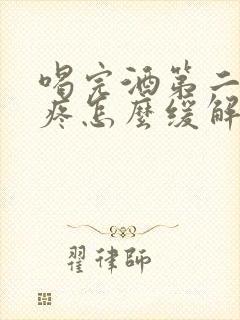 喝完酒第二
疼怎麼缓解
翟律師